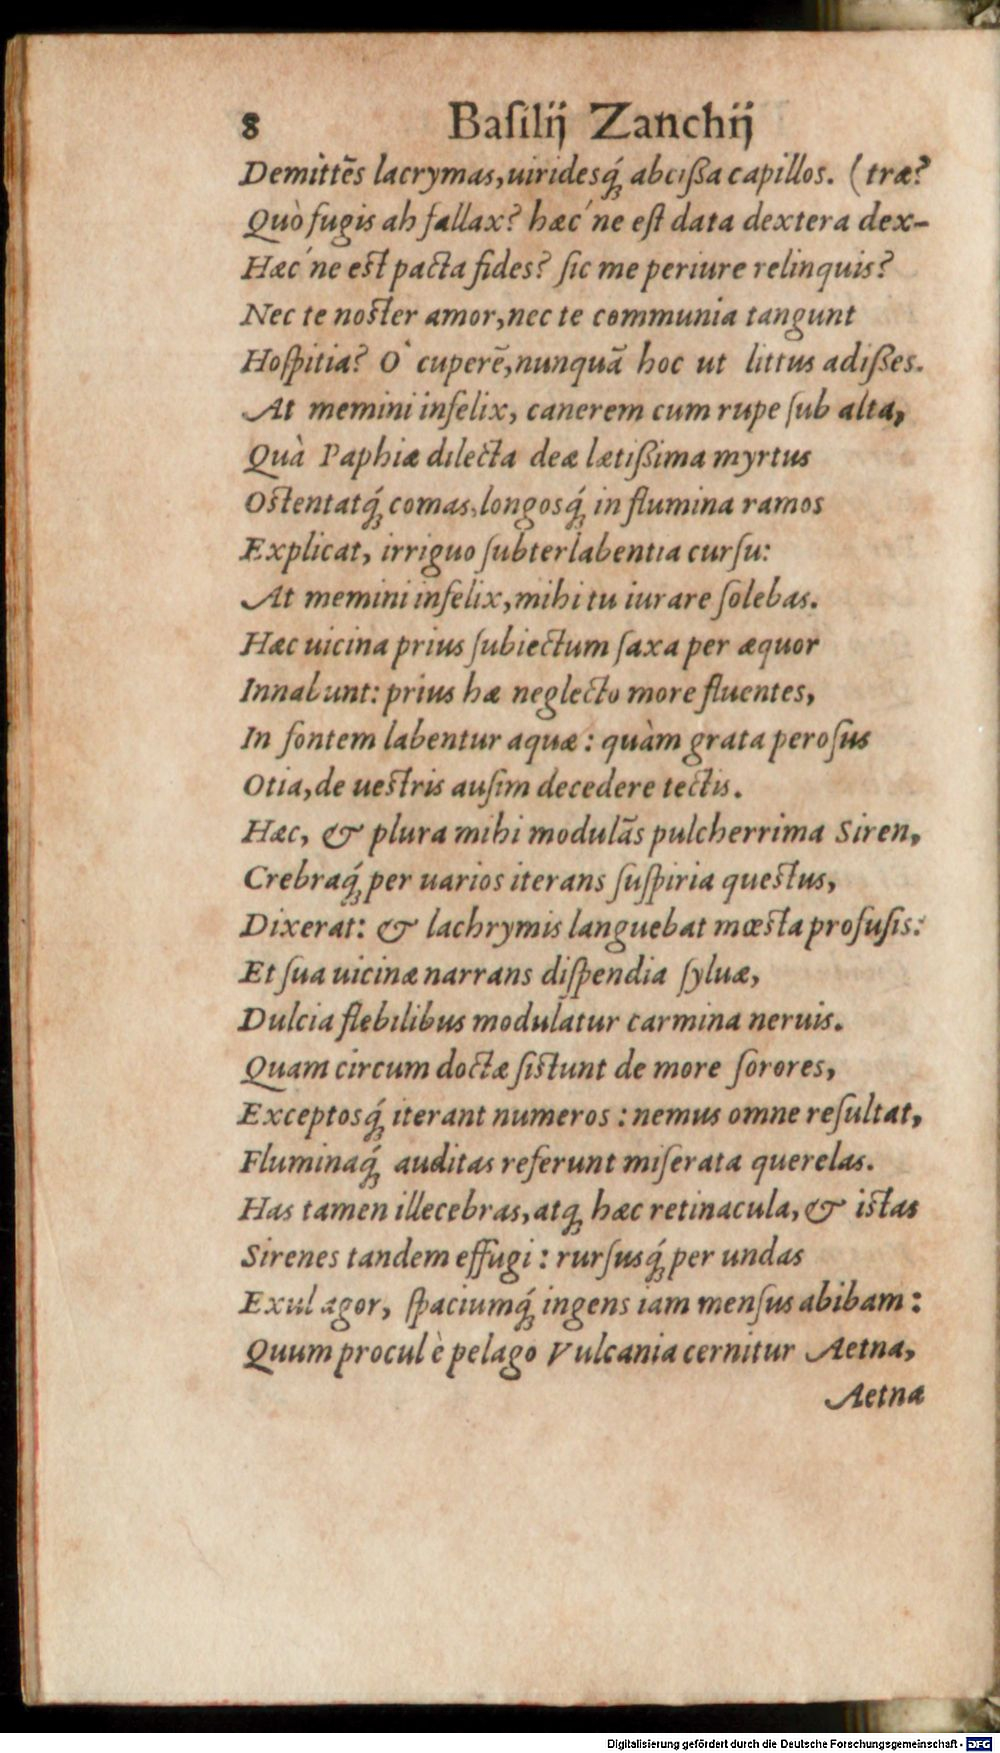 8 Baſilij Zanchij
Demittēs lacrymas, uiridesq́; abcißa capillos. (træ?
Quò fugis ah fallax? hæc´ne eſt data dextera dex-
Hæc´ne eſt pacta fides? ſic me periure relinquis?
Nec te noſter amor, nec te communia tangunt
Hoſpitia? O` cuperē, nunquā hoc ut littus adißes.
At memini infelix, canerem cum rupe ſub alta,
Quà Paphiæ dilecta deæ lætißima myrtus
Oſtentatq́; comas, longosq́; in flumina ramos
Explicat, irriguo ſubterlabentia curſu:
At memini infelix, mihi tu iurare ſolebas.
Hæc uicina prius ſubiectum ſaxa per æquor
Innabunt: prius hæ neglecto more fluentes,
In fontem labentur aquæ: quàm grata peroſus
Otia, de ueſtris auſim decedere tectis.
Hæc, & plura mihi modulās pulcherrima Siren,
Crebraq́; per uarios iterans ſuſpiria queſtus,
Dixerat: & lachrymis languebat mœſta profuſis:
Et ſua uicinæ narrans diſpendia ſyluæ,
Dulcia flebilibus modulatur carmina neruis.
Quam circum doctæ ſiſtunt de more ſorores,
Exceptosq́; iterant numeros: nemus omne reſultat,
Fluminaq́; auditas referunt miſerata querelas.
Has tamen illecebras, atq; hæc retinacula, & iſtas
Sirenes tandem effugi: rurſusq́; per undas
Exul agor, ſpaciumq́; ingens iam menſus abibam:
Quum procul è pelago Vulcania cernitur Aetna,
Aetna
Digitalisierung gefördert durch die Deutsche Forschungsgemeinschaft - DFG